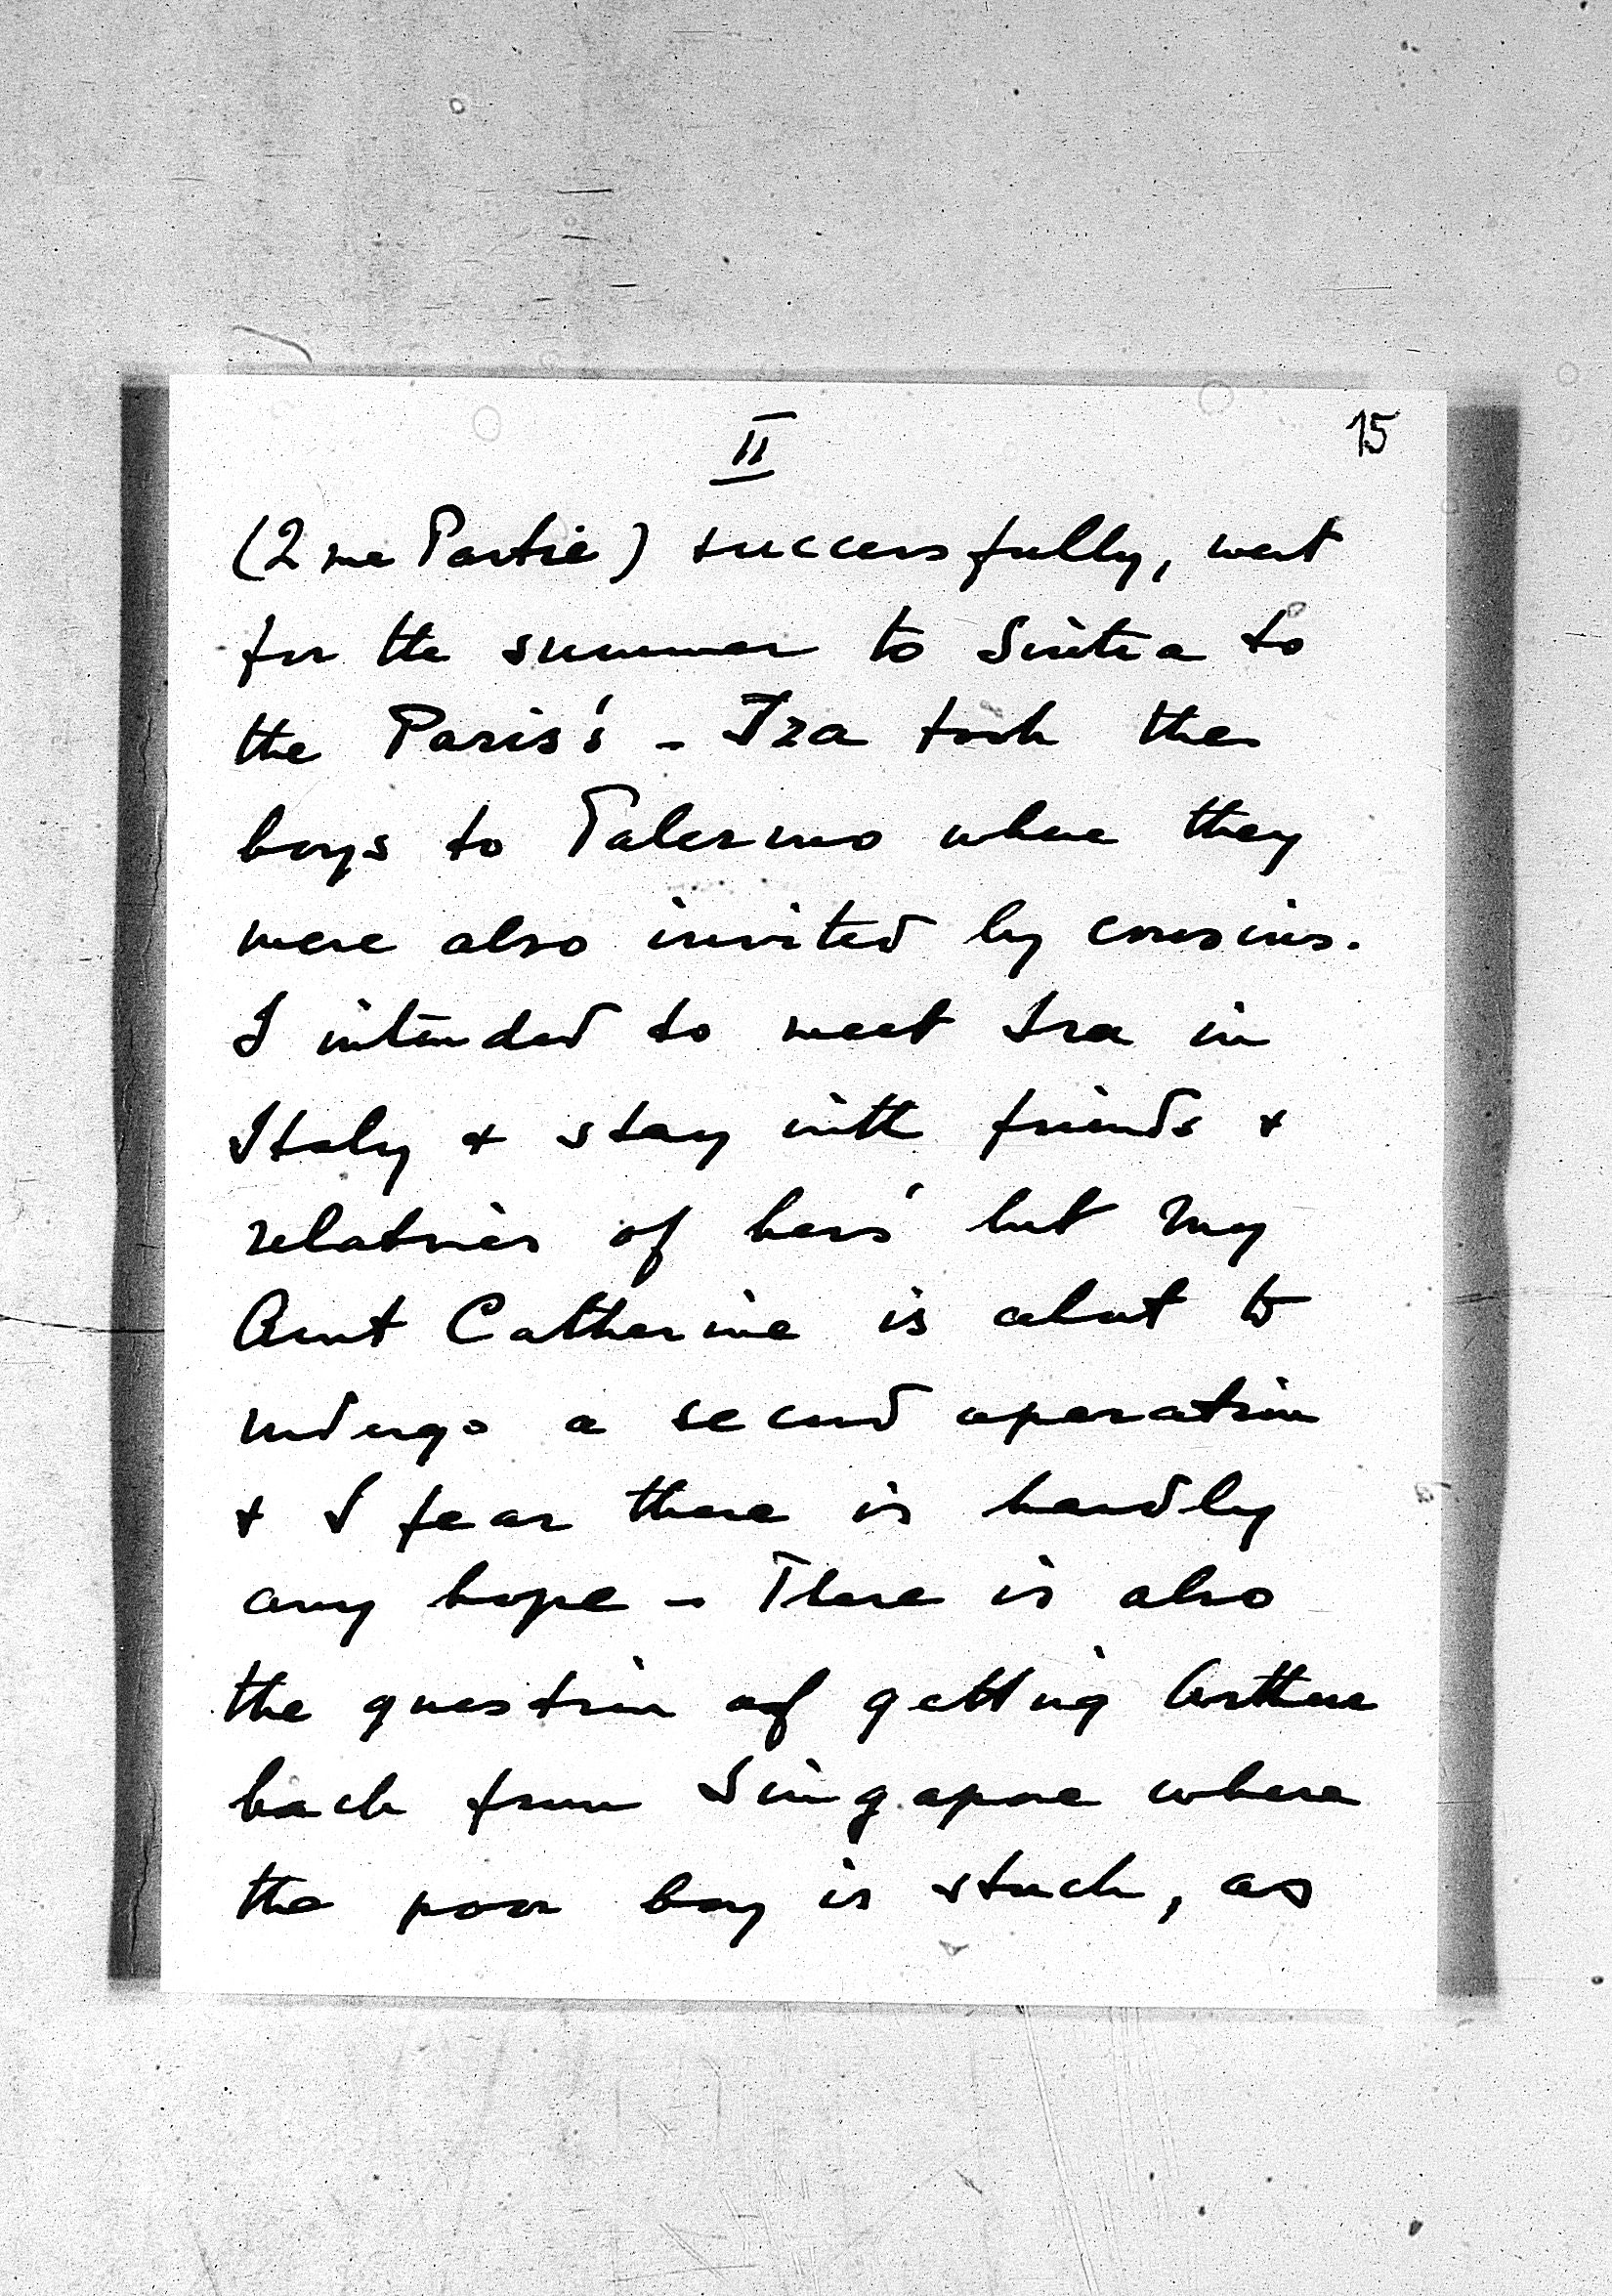 II
15
(2me Partie) successfully, went
for the summer to Sintra to
the Paris's - Iza took the
boys to Palermo where they
were also invited by cousins.
I intended to meet Iza in
Italy & stay with friends &
relatives of hers' but my
Aunt Catherine is about to
undergo a second operation
& I fear there is hardly
any hope - There is also
the question of getting Arthur
back from Singapore where
the poor boy is stuck, as